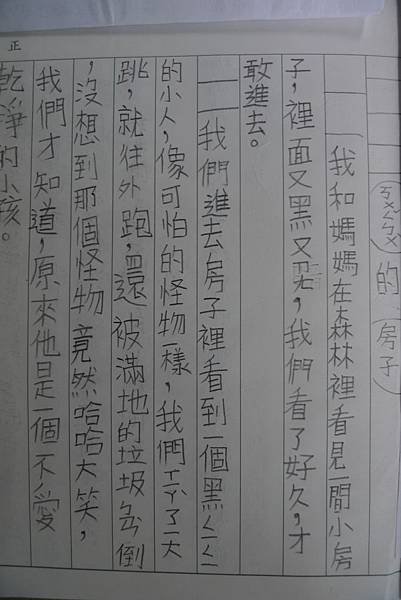 正
的(房子)
我和媽媽在森林裡看見一間小房
子,裡面又黑又,我們看了好久,才
敢進去。
我們進去房子裡看到一個黑ㄑㄑ
的小人,像可怕的怪物一樣,我們ㄒㄚˋ了一大
跳,就往外跑,還被滿地的垃圾倒
,沒想到那個怪物竟然哈哈大笑,
我們才知道,原來他是一個不愛
乾淨的小孩。